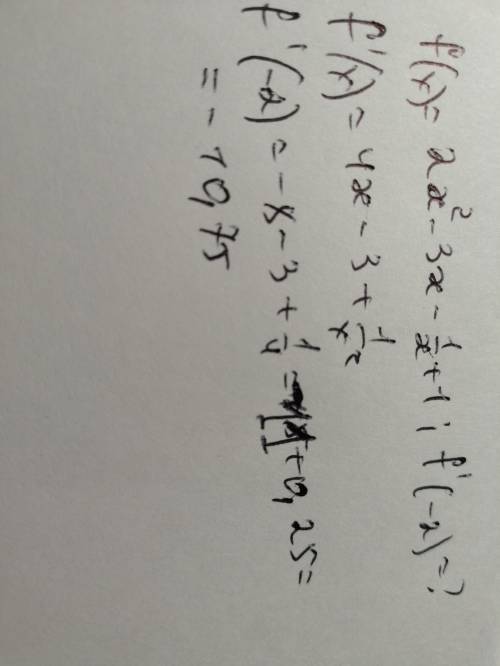 f(x) = 2x² - 3x - 1/x + 1; f'(-2) = ?
f'(x) = 4x - 3 + 1/x²
f'(-2) = -8 - 3 + 1/4 = + 0,25 =
= - 10,75